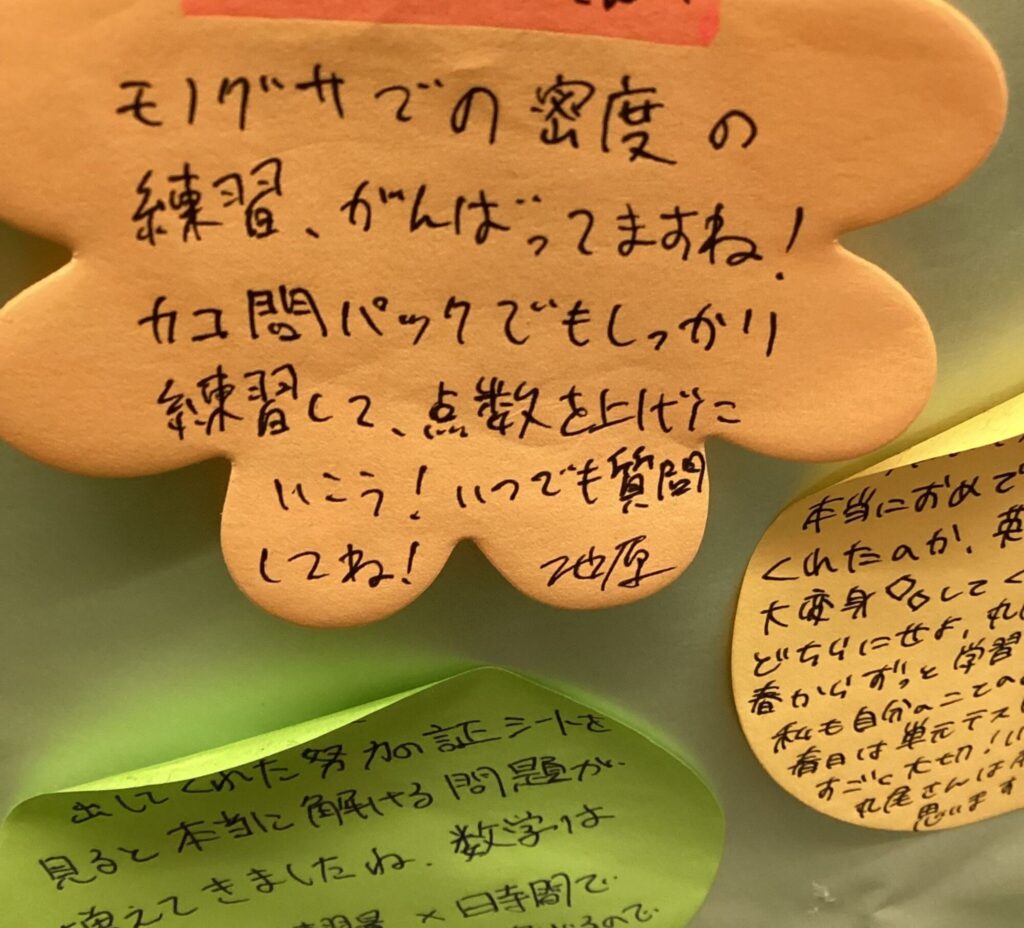 モノグサでの密度の
練習、がんばってますね!
カコ問パックでもしっかり
練習して、点数を上げに
いこう!いつでも質問
してね! 池原
本当におめで
くれたのか、英
大変身して
どちらにせよ、丸
春からずっと学習
私も自分のことの
春日は単元テス
すごく大切!
丸尾さんは
思います
出してくれた努力の証シートを
見ると本当に解ける問題が
増えてきましたね。数学は
習量×時間で